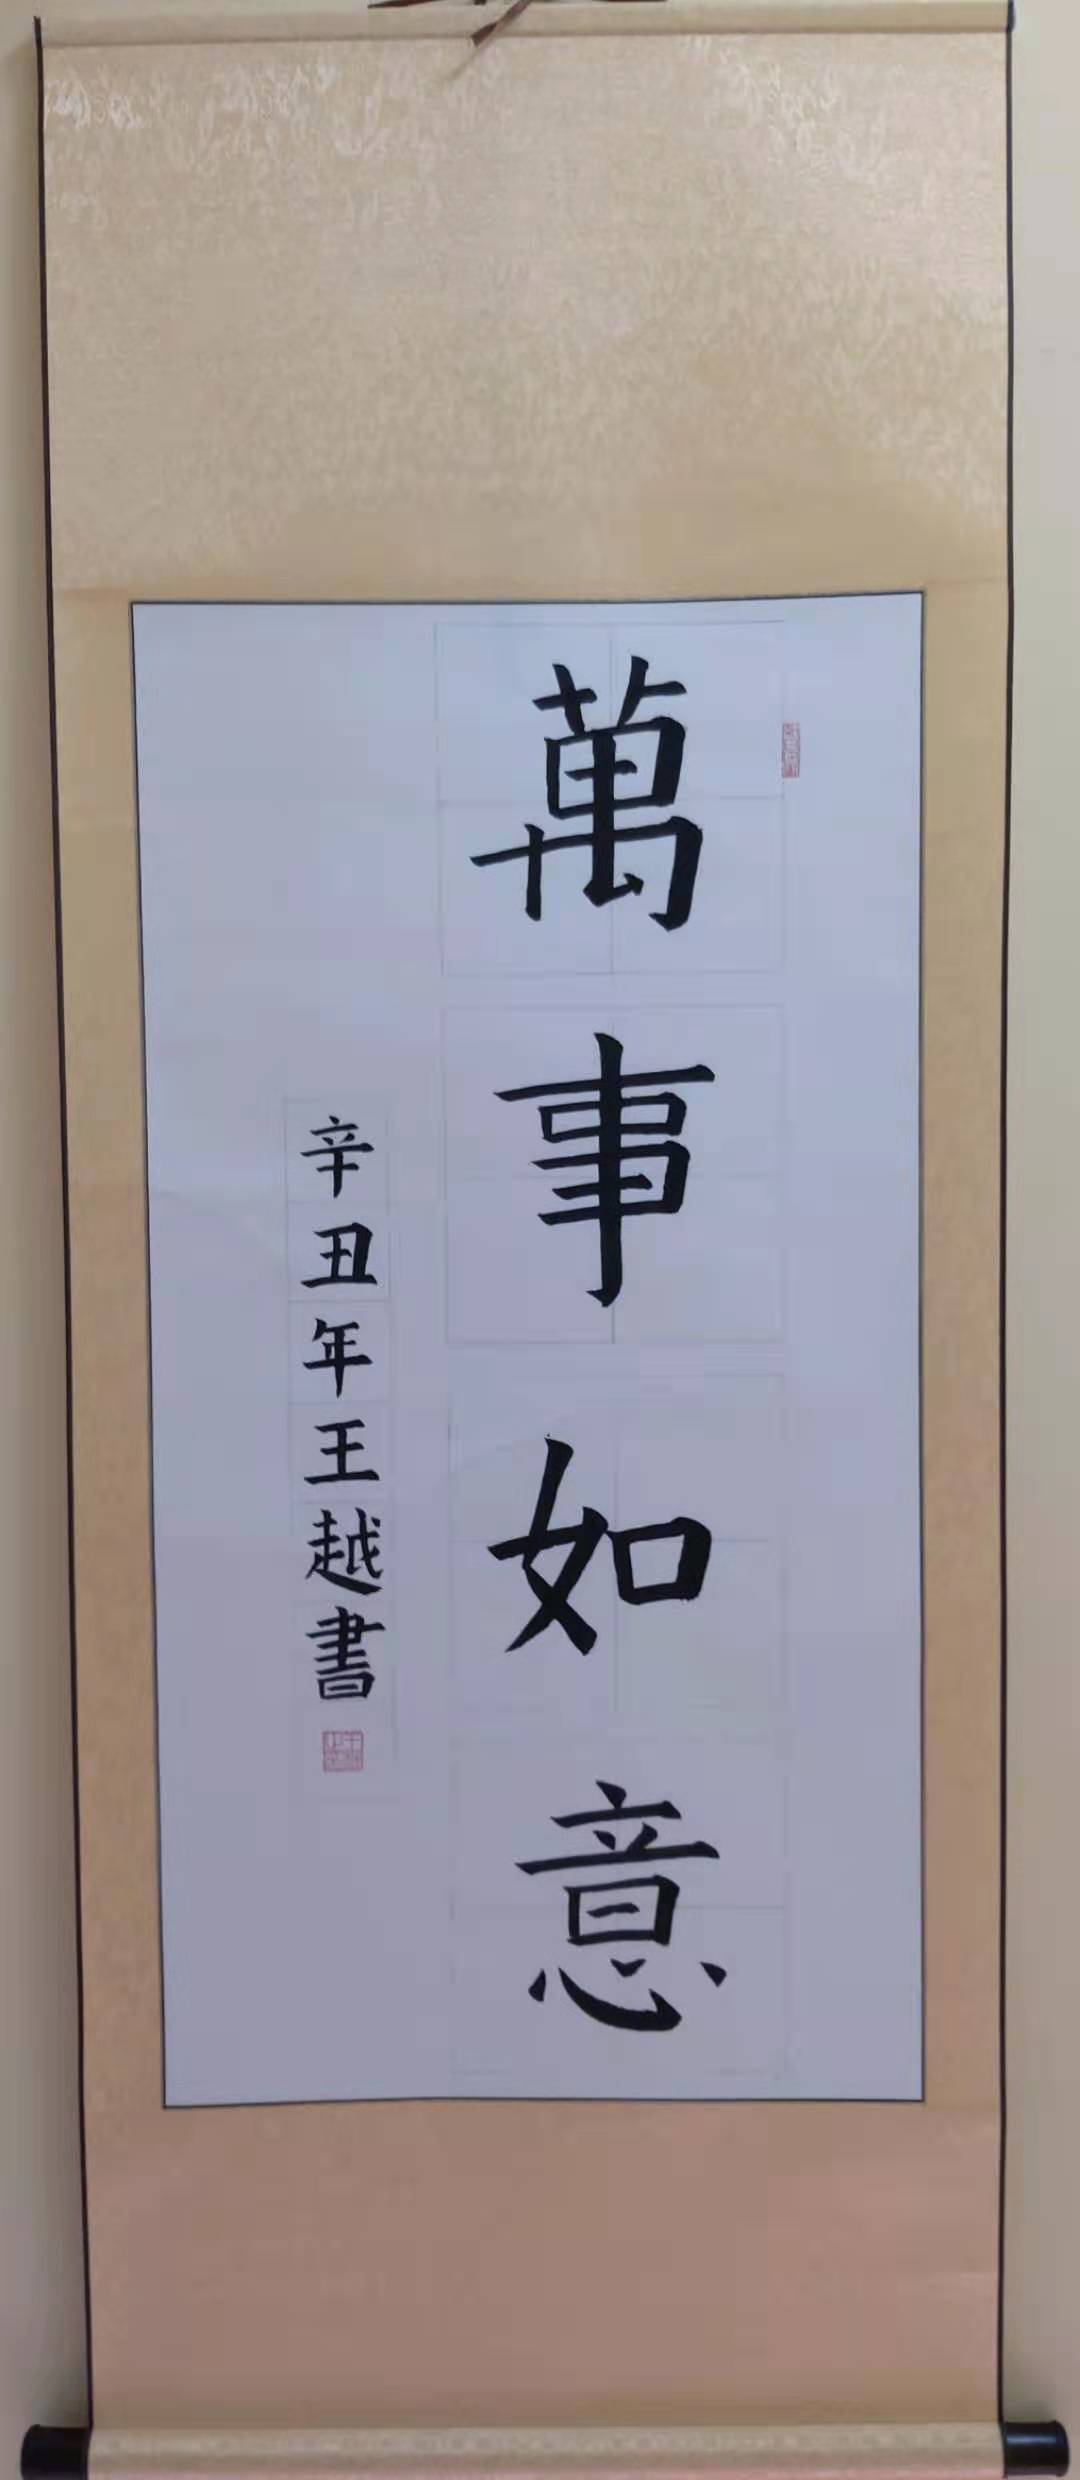 萬事如意
辛丑年王越書